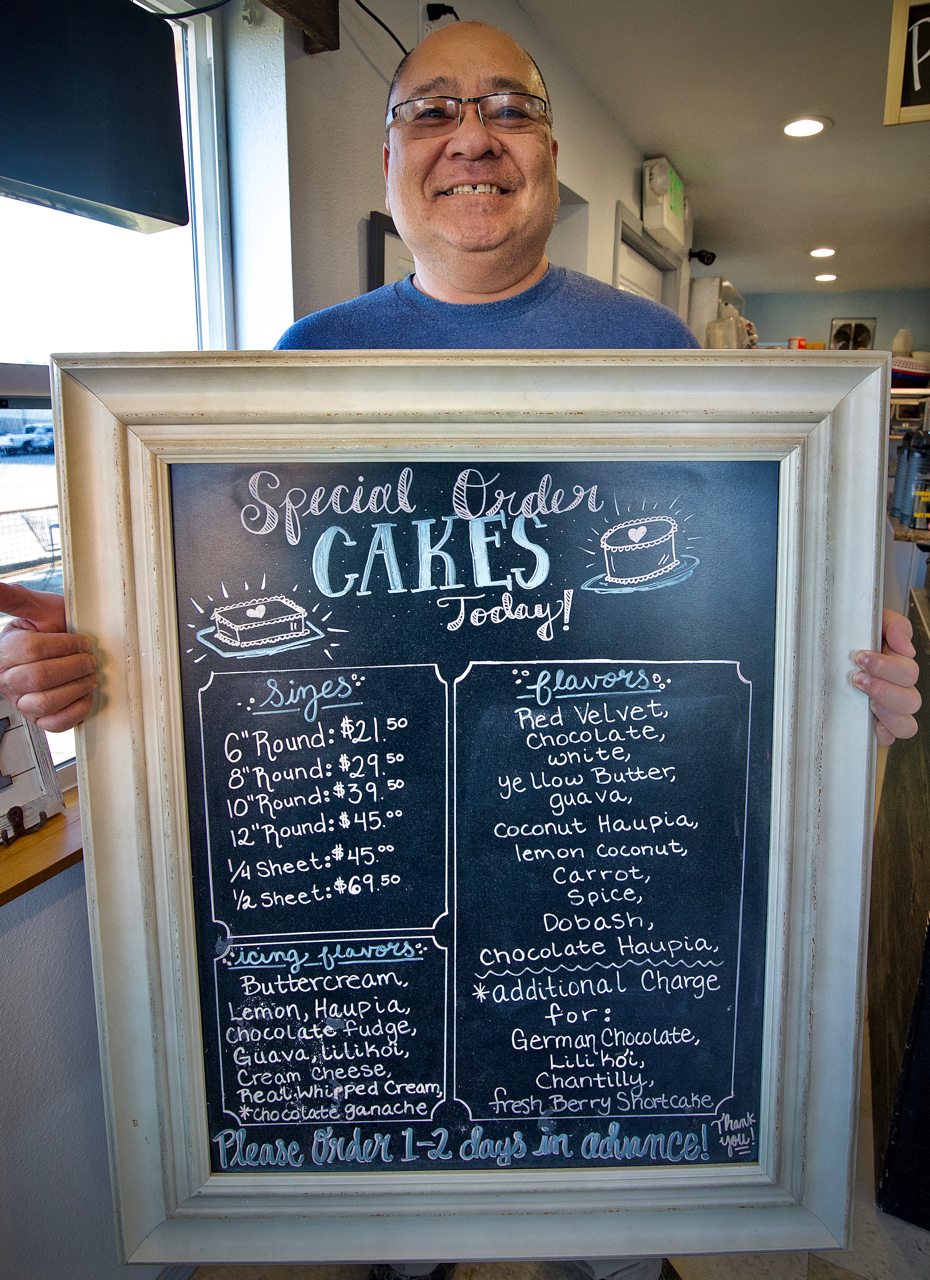 Special Order
CAKES
Today!
sizes
6" Round: $21.50
8" Round: $29.50
10" Round: $39.50
12" Round: $45.00
1/4 Sheet: $45.00
1/2 Sheet: $69.50
icing flavors
Buttercream,
Lemon, Haupia,
chocolate fudge,
Guava, lilikoi,
Cream Cheese,
Real Whipped Cream,
*chocolate ganache
flavors
Red Velvet,
Chocolate,
white,
yellow Butter,
guava,
Coconut Haupia,
lemon coconut,
Carrot,
Spice,
Dobash,
Chocolate Haupia,
*additional Charge
for:
German Chocolate,
Lili'koi,
Chantilly,
fresh Berry Shortcake
Please Order 1-2 days in advance!
Thank
you!